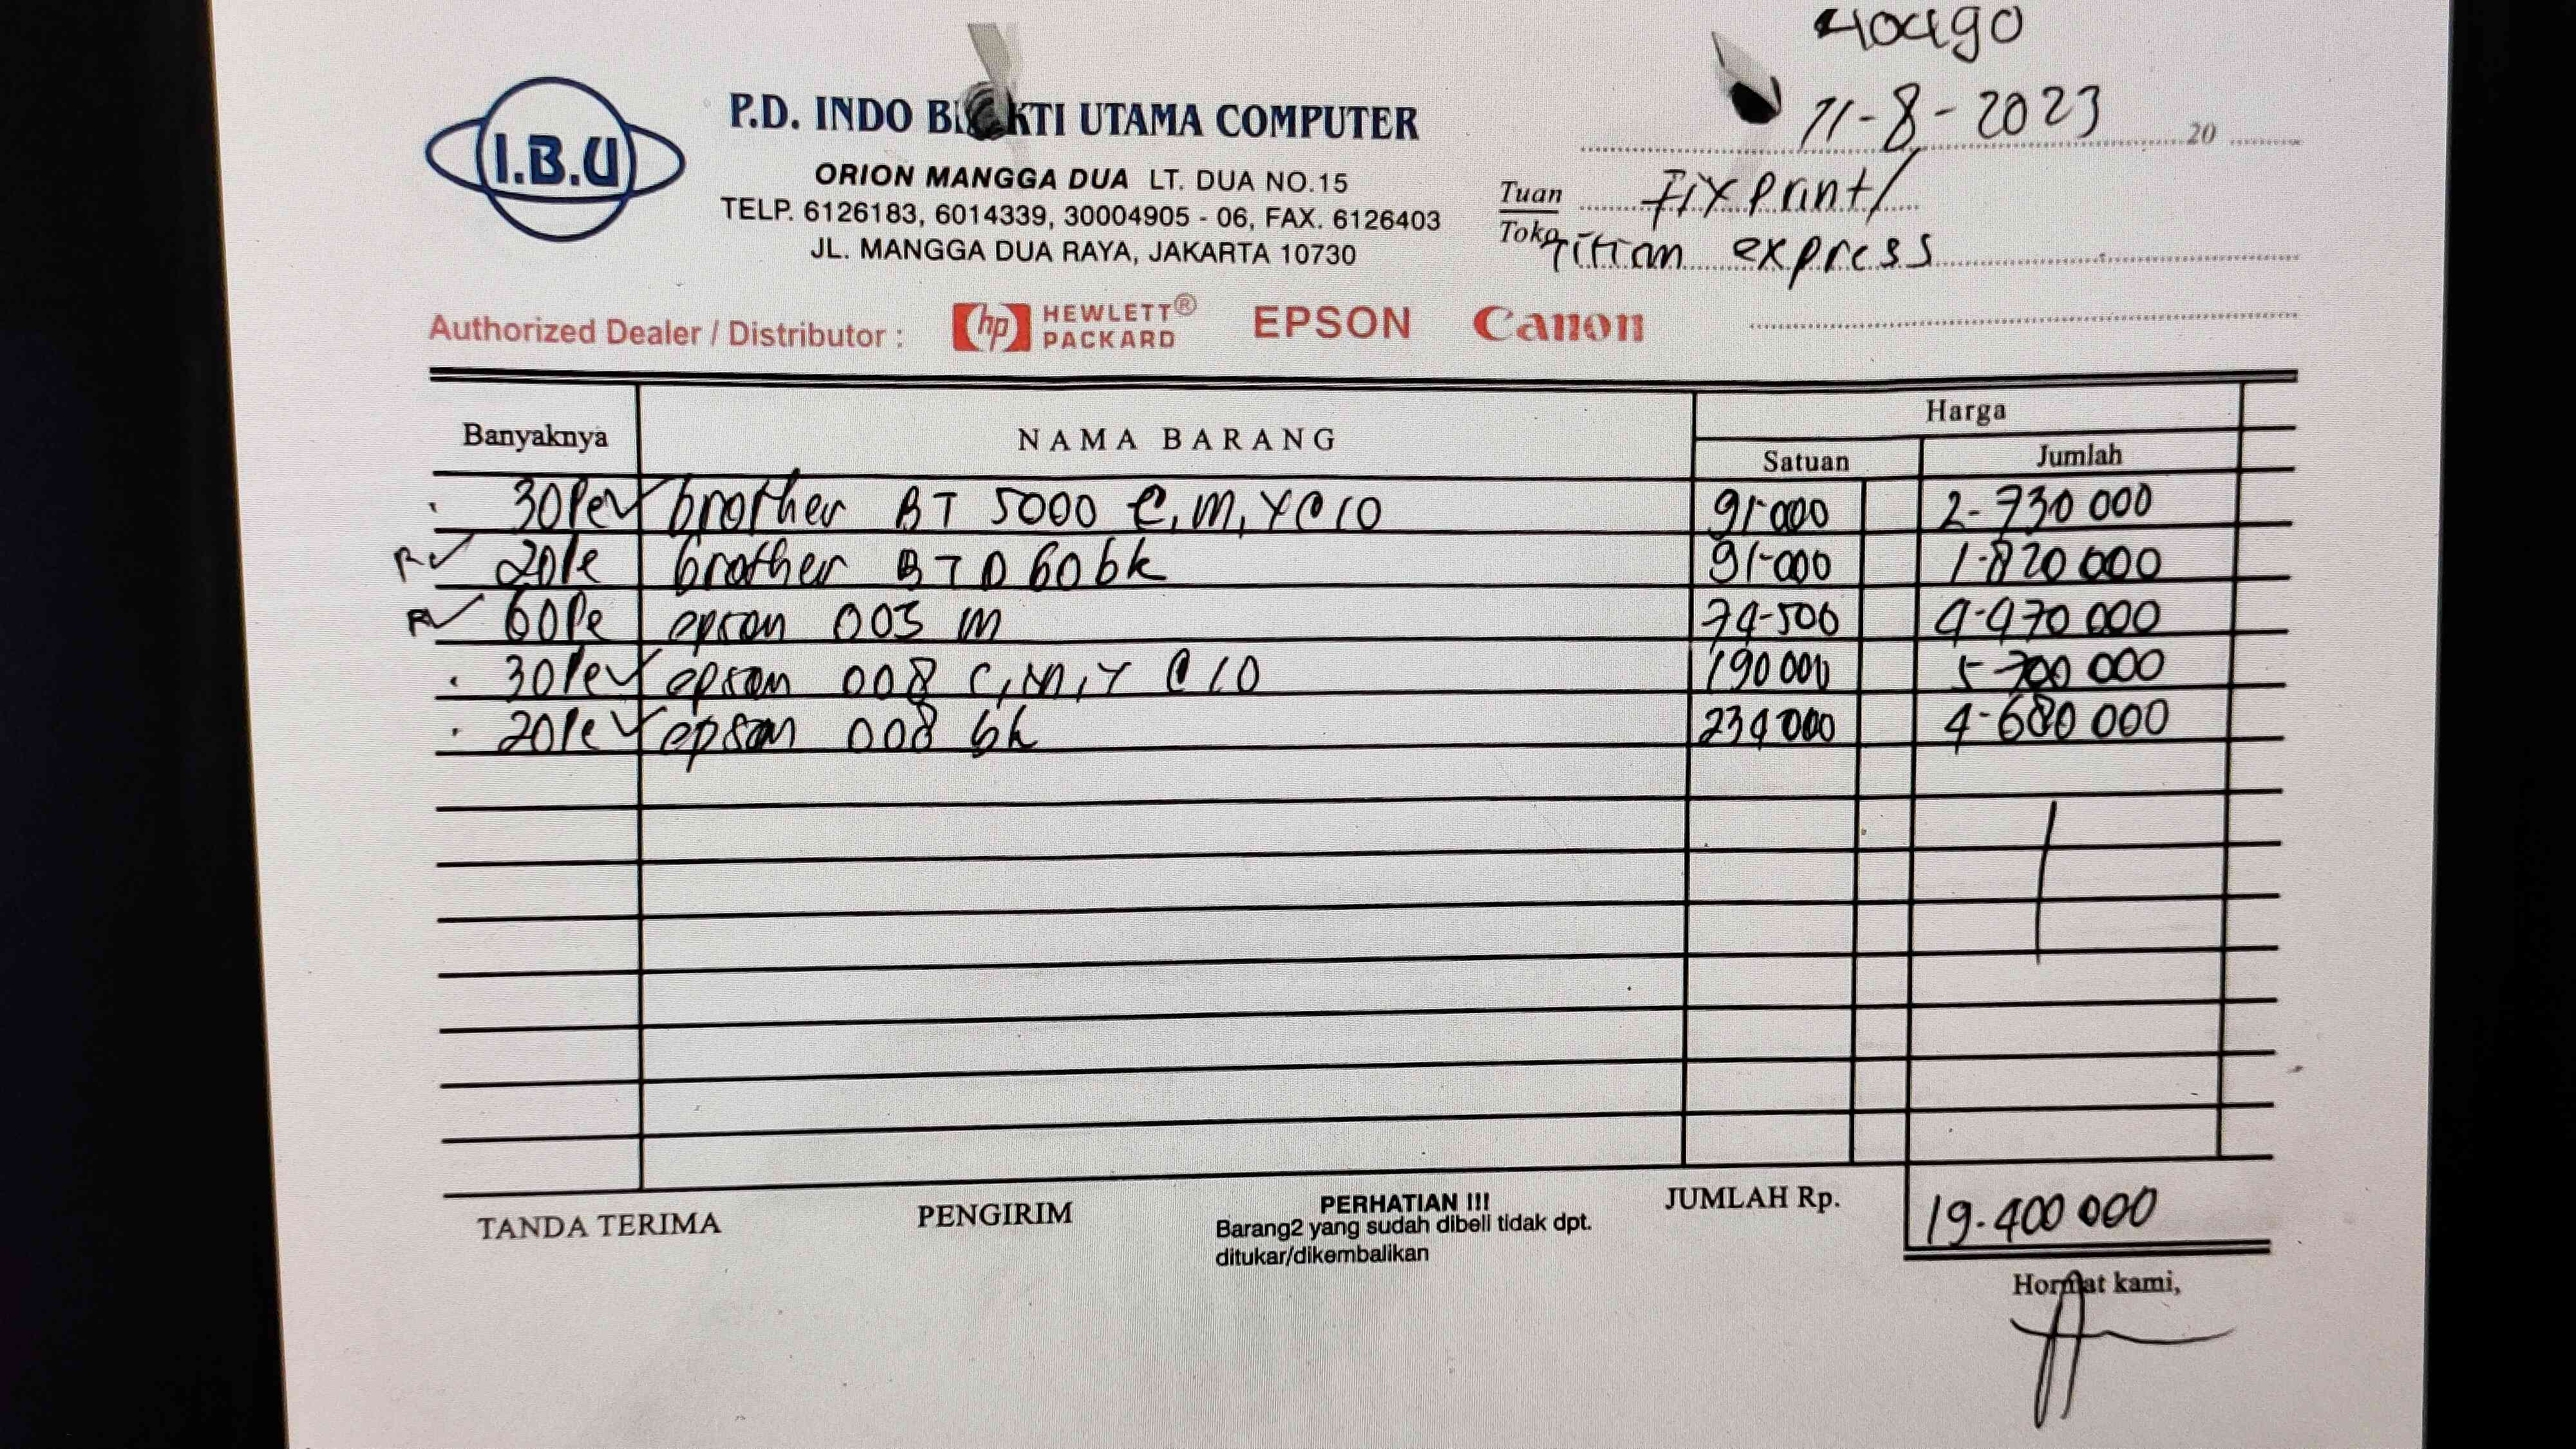 11-8-2023 20
I.B.U
P.D. INDO BUKTI UTAMA COMPUTER
ORION MANGGA DUA LT. DUA NO.15
TELP. 6126183, 6014339, 30004905 - 06, FAX. 6126403
JL. MANGGA DUA RAYA, JAKARTA 10730
Tuan Fixprint/
Toko Titian express
Authorized Dealer / Distributor : hp HEWLETT® PACKARD EPSON Canon
Banyaknya NAMA BARANG Harga
Satuan Jumlah
30 brother BT 5000 C, M, Y @ 10 91-000 2-730 000
20 brother BTD 60 bk 91-000 1-820 000
60 epson 003 m 74-500 4-470 000
30 epson 008 C, M, Y @ 10 190 000 5-700 000
20 epson 008 bk 234 000 4-680 000
TANDA TERIMA PENGIRIM PERHATIAN !!! JUMLAH Rp. 19.400 000
Barang2 yang sudah dibeli tidak dpt.
ditukar/dikembalikan
Hormat kami,